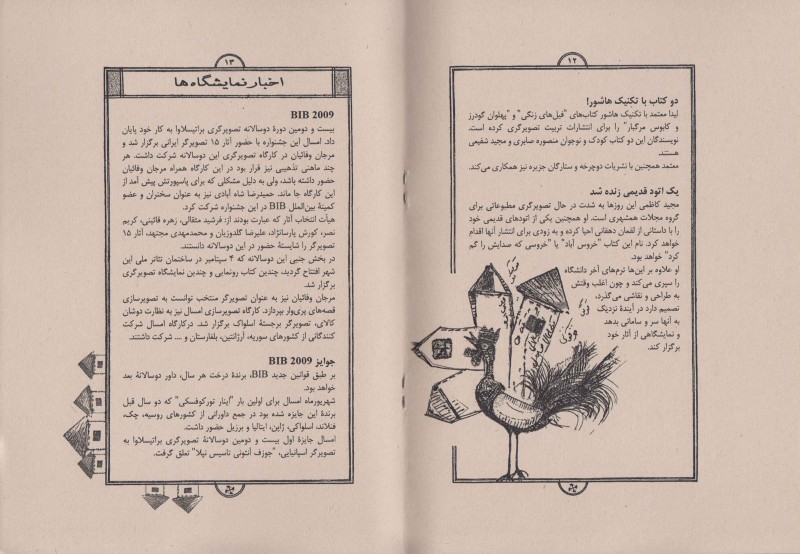 ۱۲
دو کتاب با تکنیک هاشور!
لیدا معتمد با تکنیک هاشور کتاب‌های "فیل‌های زنگی" و "پهلوان گودرز
و کابوس مرگبار" را برای انتشارات تربیت تصویرگری کرده است.
نویسندگان این دو کتاب کودک و نوجوان منصوره صابری و مجید شفیعی
هستند.
معتمد همچنین با نشریات دوچرخه و ستارگان جزیره نیز همکاری می‌کند.
یک اتود قدیمی زنده شد
مجید کاظمی این روزها به شدت در حال تصویرگری مطبوعاتی برای
گروه مجلات همشهری است. او همچنین یکی از اتودهای قدیمی خود
را با داستانی از لقمان دهقانی احیا کرده و به زودی برای انتشار آنها اقدام
خواهد کرد. نام این کتاب "خروس آباد" یا "خروسی که صدایش را گم
کرد" خواهد بود.
او علاوه بر این‌ها ترم‌های آخر دانشگاه
را سپری می‌کند و چون اغلب وقتش
به طراحی و نقاشی می‌گذرد،
تصمیم دارد در آیندهٔ نزدیک
به آنها سر و سامانی بدهد
و نمایشگاهی از آثار خود
برگزار کند.
۱۳
اخبار نمایشگاه ها
BIB 2009
بیست و دومین دورهٔ دوسالانه تصویرگری براتیسلاوا به کار خود پایان
داد. امسال این جشنواره با حضور آثار ۱۵ تصویرگر ایرانی برگزار شد و
مرجان وفائیان در کارگاه تصویرگری این دوسالانه شرکت داشت. هر
چند ماهنی تذهیبی نیز قرار بود در این کارگاه همراه مرجان وفائیان
حضور داشته باشد، ولی به دلیل مشکلی که برای پاسپورتش پیش آمد از
این کارگاه جا ماند. حمیدرضا شاه آبادی نیز به عنوان سخنران و عضو
کمیتهٔ بین‌الملل BIB در این جشنواره شرکت کرد.
هیأت انتخاب آثار که عبارت بودند از: فرشید مثقالی، زهره قائینی، کریم
نصر، کورش پارسانژاد، علیرضا گلدوزیان و محمدمهدی مجتهد، آثار ۱۵
تصویرگر را شایستهٔ حضور در این دوسالانه دانستند.
در بخش جنبی این دوسالانه که ۴ سپتامبر در ساختمان تئاتر ملی این
شهر افتتاح گردید، چندین کتاب رونمایی و چندین نمایشگاه تصویرگری
برگزار شد.
مرجان وفائیان نیز به عنوان تصویرگر منتخب توانست به تصویرسازی
قصه‌های پری‌وار بپردازد. کارگاه تصویرسازی امسال نیز به نظارت دوشان
کالای، تصویرگر برجستهٔ اسلواک برگزار شد. درکارگاه امسال شرکت
کنندگانی از کشورهای سوریه، آرژانتین، بلغارستان و .... شرکت داشتند.
جوایز BIB 2009
بر طبق قوانین جدید BIB، برندهٔ درخت هر سال، داور دوسالانهٔ بعد
خواهد بود.
شهریورماه امسال برای اولین بار "اینار تورکوفسکی" که دو سال قبل
برندهٔ این جایزه شده بود در جمع داورانی از کشورهای روسیه، چک،
فنلاند، اسلواکی، ژاپن، ایتالیا و برزیل حضور داشت.
امسال جایزهٔ اول بیست و دومین دوسالانهٔ تصویرگری براتیسلاوا به
تصویرگر اسپانیایی، "جوزف آنتونی تاسیس نیلا" تعلق گرفت.